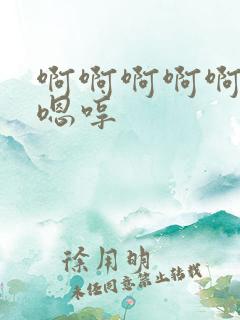 啊啊啊啊啊
嗯哼
徐用明
未经同意禁止转载